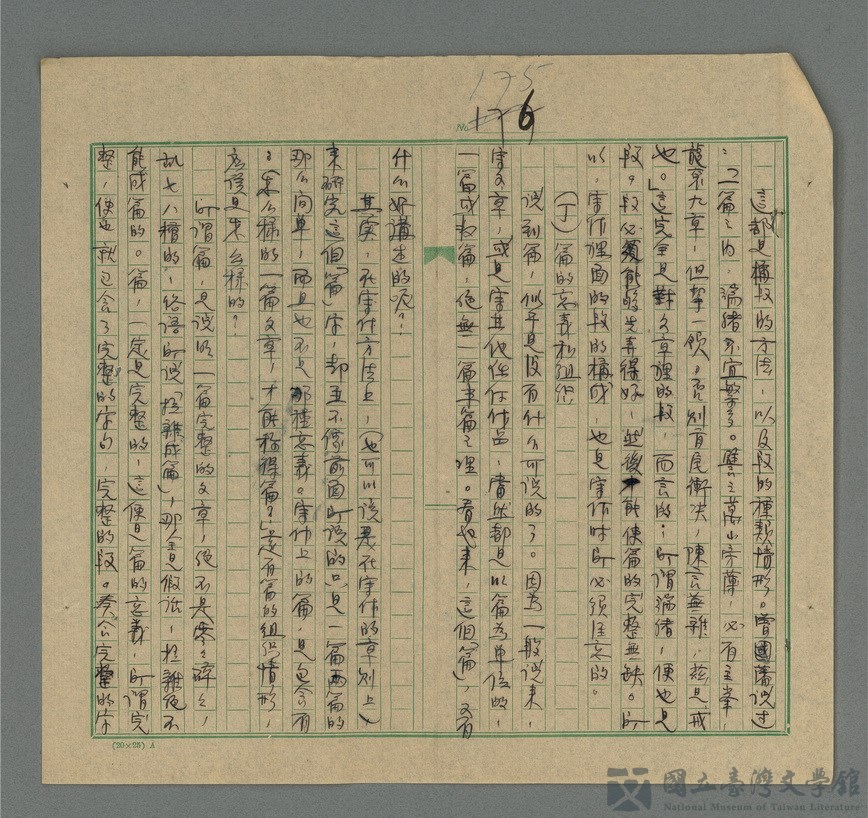 175
No. 176
這都是構段的方法,以及段的種類情形。曾國藩說过
:「一篇之内,端緒不宜繁多。譬之萬山旁薄,必有主峯,
龍袞九章,但挈一領。否則首尾衝决,陳言蕪雜,茲足戒
也。」這完全是對文章裡的段,而言的;所謂端緒,便也是
段。段必須能夠先弄得好,然後才能使篇的完整無缺。所
以,寫作裡面的段的構成,也是寫作時所必須注意的。
(丁)篇的意義和組織
說到篇,似乎是没有什么可說的了。因為一般說來,
寫文章,或是寫其他任何作品,當然都是以篇為單位的,
一篇或数篇,絕無一篇半篇之理。看起來,這個「篇」,又有
什么好講述的呢?
其實,在寫作方法上,(也可以說是在寫作的章則上)
來研究這個「篇」字,却並不像前面所說的只是一篇两篇的
那么简單,而且也不是那種意義。寫作上的篇,是包含有
:「怎么樣的一篇文章,才能称得篇?」還有篇的組织情形,
應該是怎么樣的?
所謂篇,是說以一篇完整的文章,绝不是零零碎碎,
乱七八糟的,俗語所說「拉雜成篇」,那全是假話,拉雜绝不
能成篇的。篇,一定是完整的,這便是篇的意義,所謂完
整,便也就包含了完整的字句,完整的段。奏合完整的字
(20×25) A
國立臺灣文學館
National Museum of Taiwan Literature